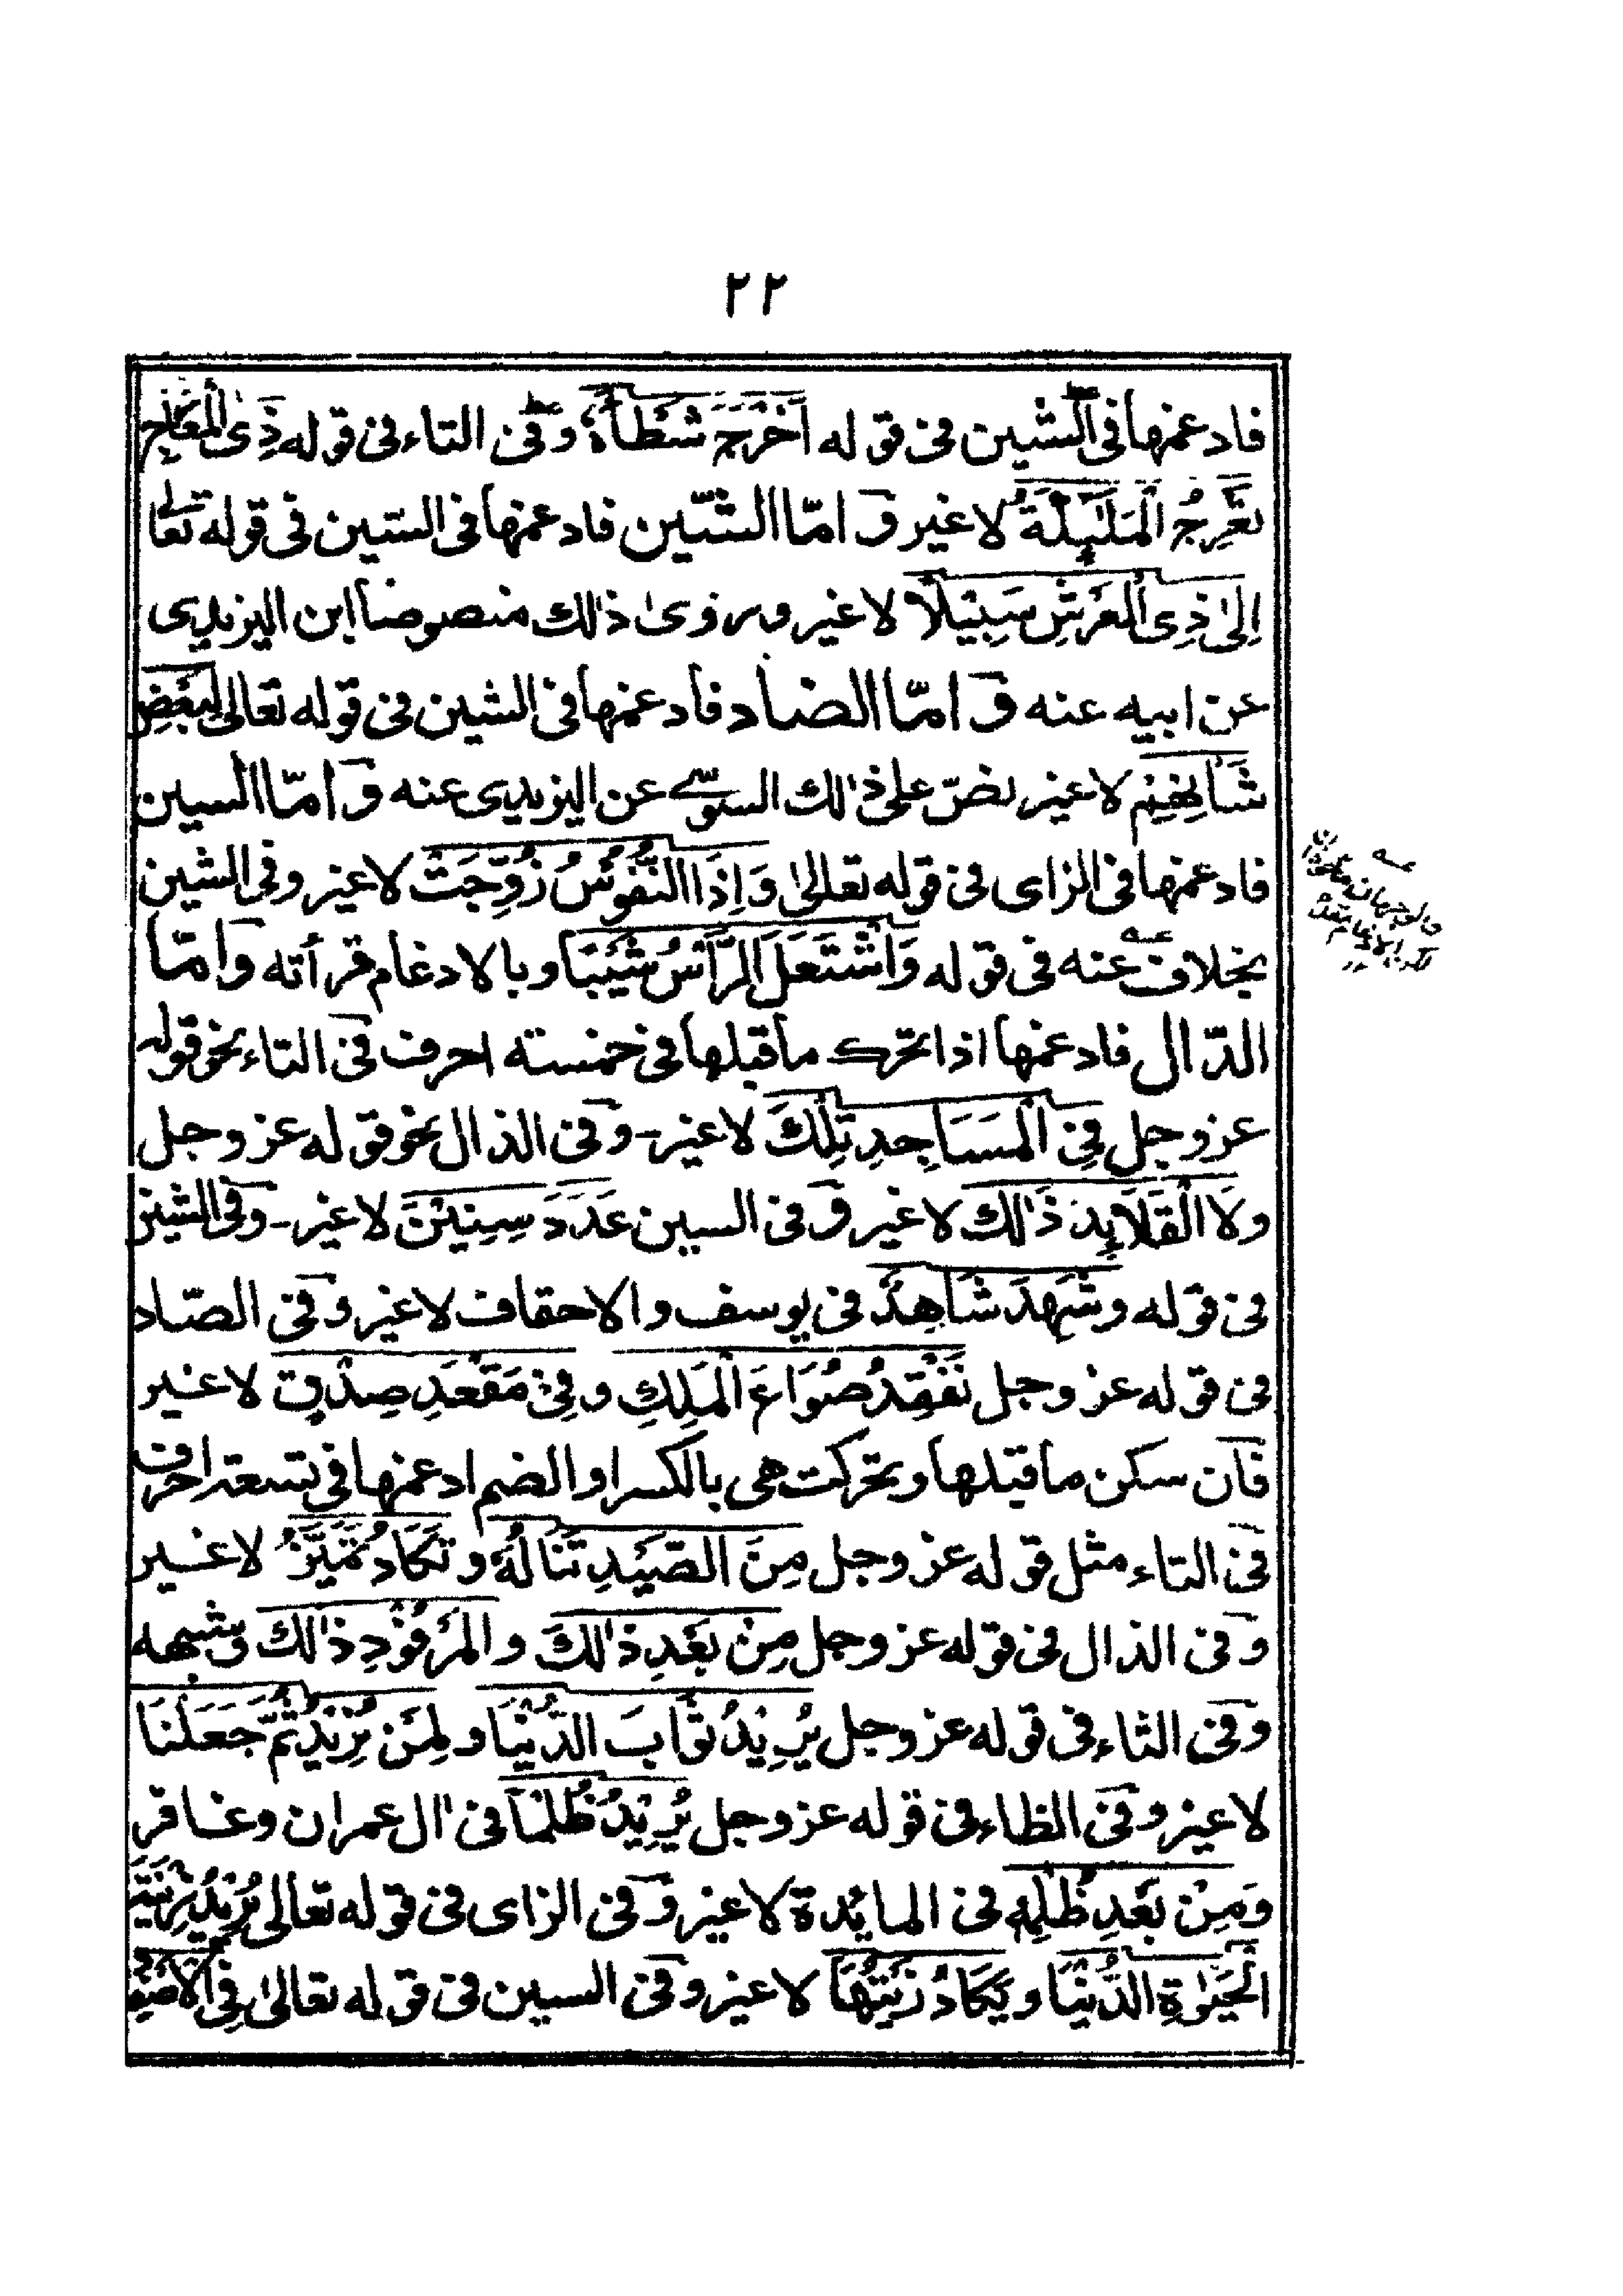 ٢٢
فادغمها فى الشين فى قوله اَخْرَجَ شَطْأَهٗ وفى التاء فى قوله ذِى الْمَعَارِجِ
تَعْرُجُ الْمَلٰٓئِكَةُ لا غير و امّا الشّين فادغمها فى السين فى قوله تعالى
اِلىٰ ذِى الْعَرْشِ سَبِيْلًا لا غير وروىٰ ذٰلك منصوصا ابن اليزيدى
عن ابيه عنه و امّا الضاد فادغمها فى الشين فى قوله تعالى لِبَعْضِ
شَأْنِهِمْ لا غير نصّ على ذٰلك السوسى عن اليزيدى عنه و امّا السين
فادغمها فى الزاى فى قوله تعالىٰ وَاِذَا النُّفُوْسُ زُوِّجَتْ لا غير وفى الشين
بخلاف عنه فى قوله وَاشْتَعَلَ الرَّأْسُ شَيْبًا و بالادغام قرأته و امّا
الدّال فادغمها اذا تحرك ما قبلها فى خمسته احرف فى التاء نحو قوله
عز وجل فِى الْمَسَاجِدِ تِلْكَ لا غير - وفى الذال نحو قوله عز وجل
ولَا الْقَلَآئِدَ ذٰلك لا غير و فى السين عَدَدَ سِنِيْنَ لا غير - وفى الشين
فى قوله وشَهِدَ شَاهِدٌ فى يوسف و الاحقاف لا غير وفى الصّاد
فى قوله عز وجل نَفْقِدُ صُوَاعَ الْمَلِكِ و فِىْ مَقْعَدِ صِدْقٍ لا غير
فان سكن ما قبلها وتحركت هى بالكسر او الضم ادغمها فى تسعة احرف
فى التاء مثل قوله عز وجل مِنَ الصَّيْدِ تَنَالُهٗ و تَكَادُ تَمَيَّزُ لا غير
وفى الذال فى قوله عز وجل مِنْ بَعْدِ ذٰلكَ و الْمَرْفُوْدِ ذٰلك وشبهه
وفى الثاء فى قوله عز وجل يُرِيْدُ ثَوَابَ الدُّنْيَا و لِمَنْ نُرِيْدُ ثُمَّ جَعَلْنَا
لا غير وفى الظاء فى قوله عز وجل يُرِيْدُ ظُلْمًا فى اٰل عمران وغافر
وَمِنْ بَعْدِ ظُلْمِهٖ فى المائدة لا غير وفى الزاى فى قوله تعالى تُرِيْدُ زِيْنَةَ
الْحَيٰوةِ الدُّنْيَا و يَكَادُ زَيْتُهَا لا غير وفى السين فى قوله تعالىٰ فِى الْاَصْفَادِ